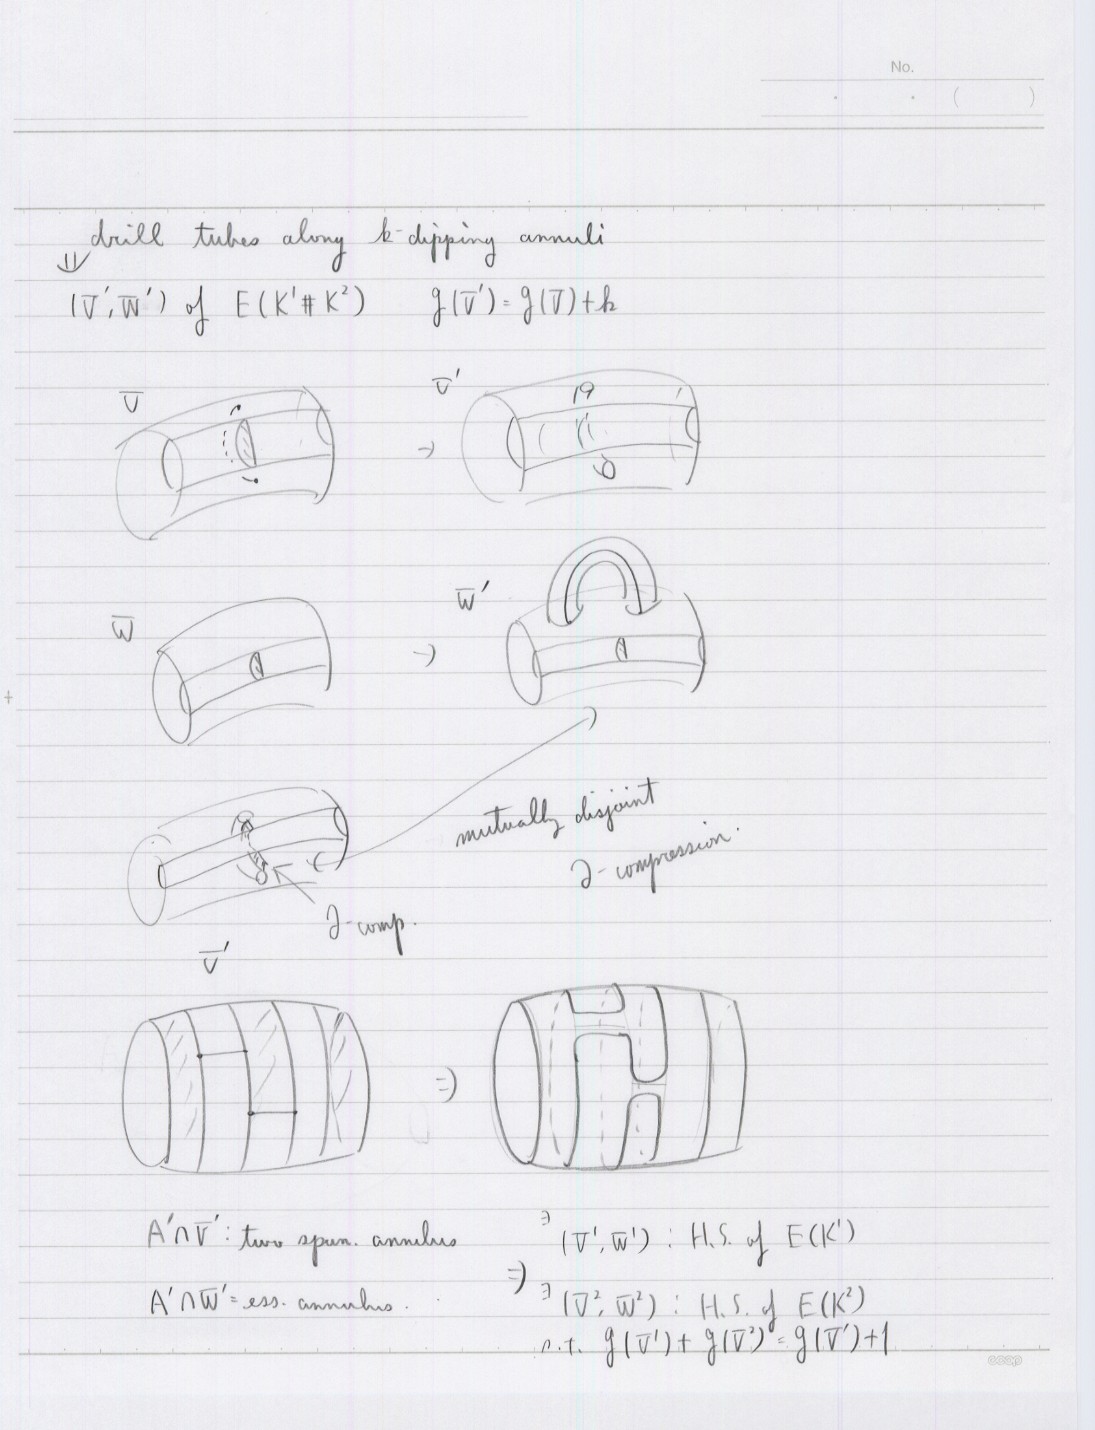 No.
. . ( )
drill tubes along k-dipping annuli
⇓
(V̄', W̄') of E(K¹#K²) g(V̄') = g(V̄)+k
V̄ → V̄'
W̄ → W̄'
mutually disjoint
∂-compression.
∂-comp.
V̄'
⇒
A'∩V̄' : two span. annulus
∃(V̄¹, W̄¹) : H.S. of E(K¹)
⇒
A'∩W̄' = ess. annulus.
∃(V̄², W̄²) : H.S. of E(K²)
s.t. g(V̄¹) + g(V̄²) = g(V̄')+1